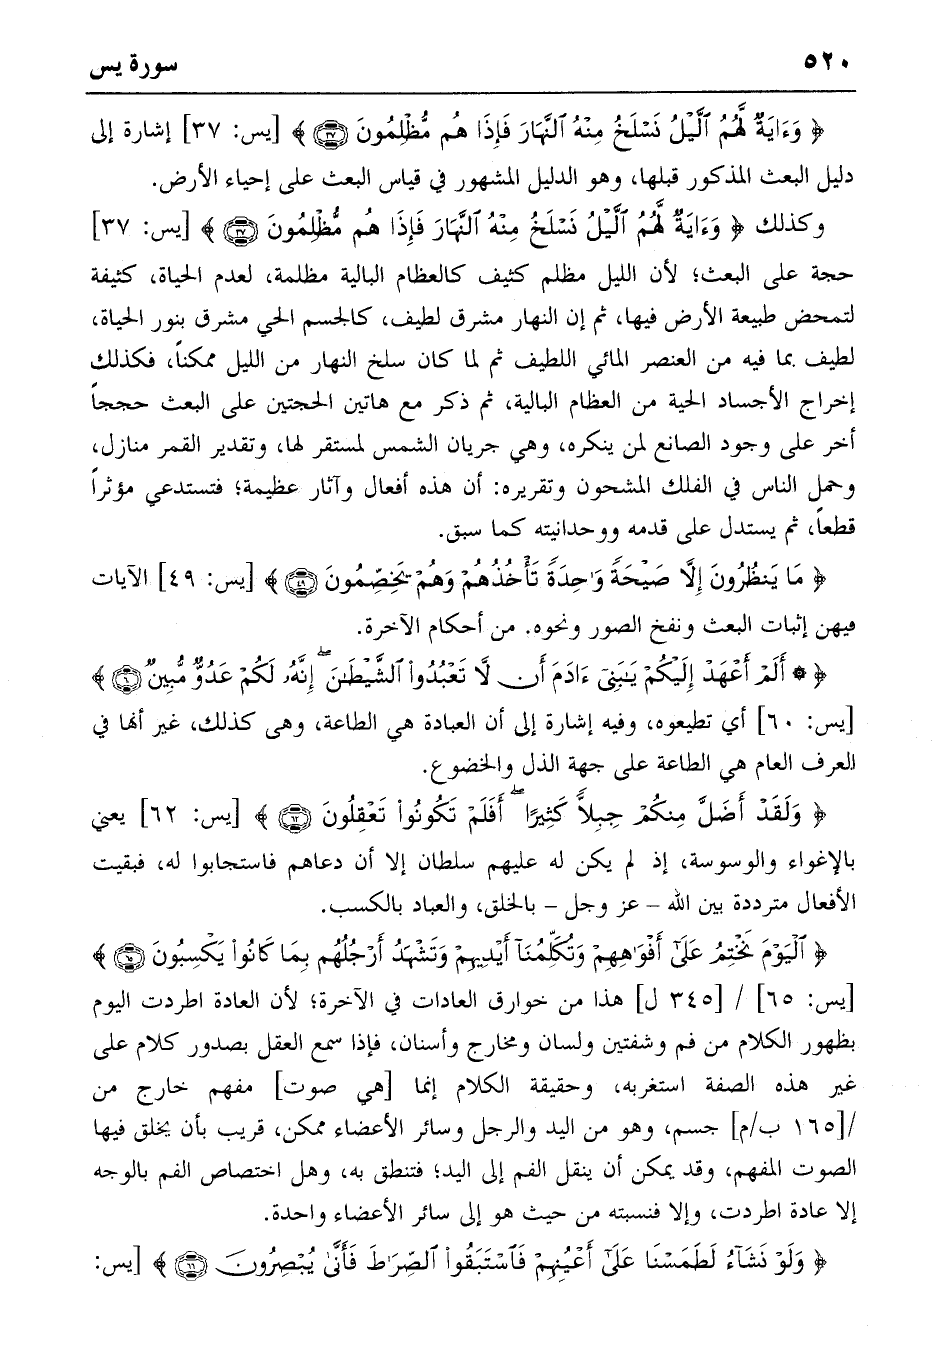 ٥٢٠ سورة يس
﴿ وَءَايَةٌ لَّهُمُ ٱلَّيْلُ نَسْلَخُ مِنْهُ ٱلنَّهَارَ فَإِذَا هُم مُّظْلِمُونَ ۝٣٧ ﴾ [يس: ٣٧] إشارة إلى
دليل البعث المذكور قبلها، وهو الدليل المشهور في قياس البعث على إحياء الأرض.
وكذلك ﴿ وَءَايَةٌ لَّهُمُ ٱلَّيْلُ نَسْلَخُ مِنْهُ ٱلنَّهَارَ فَإِذَا هُم مُّظْلِمُونَ ۝٣٧ ﴾ [يس: ٣٧]
حجة على البعث؛ لأن الليل مظلم كثيف كالعظام البالية مظلمة، لعدم الحياة، كثيفة
لتمحض طبيعة الأرض فيها، ثم إن النهار مشرق لطيف، كالجسم الحي مشرق بنور الحياة،
لطيف بما فيه من العنصر المائي اللطيف ثم لما كان سلخ النهار من الليل ممكناً، فكذلك
إخراج الأجساد الحية من العظام البالية، ثم ذكر مع هاتين الحجتين على البعث حججاً
أخر على وجود الصانع لمن ينكره، وهي جريان الشمس لمستقر لها، وتقدير القمر منازل،
وحمل الناس في الفلك المشحون وتقريره: أن هذه أفعال وآثار عظيمة؛ فتستدعي مؤثراً
قطعاً، ثم يستدل على قدمه ووحدانيته كما سبق.
﴿ مَا يَنظُرُونَ إِلَّا صَيْحَةً وَٰحِدَةً تَأْخُذُهُمْ وَهُمْ يَخِصِّمُونَ ۝٤٩ ﴾ [يس: ٤٩] الآيات
فيهن إثبات البعث ونفخ الصور ونحوه. من أحكام الآخرة.
﴿ ۞ أَلَمْ أَعْهَدْ إِلَيْكُمْ يَٰبَنِىٓ ءَادَمَ أَن لَّا تَعْبُدُوا۟ ٱلشَّيْطَٰنَ ۖ إِنَّهُۥ لَكُمْ عَدُوٌّ مُّبِينٌ ۝٦٠ ﴾
[يس: ٦٠] أي تطيعوه، وفيه إشارة إلى أن العبادة هي الطاعة، وهى كذلك، غير أنها في
العرف العام هي الطاعة على جهة الذل والخضوع.
﴿ وَلَقَدْ أَضَلَّ مِنكُمْ جِبِلًّا كَثِيرًا ۖ أَفَلَمْ تَكُونُوا۟ تَعْقِلُونَ ۝٦٢ ﴾ [يس: ٦٢] يعني
بالإغواء والوسوسة، إذ لم يكن له عليهم سلطان إلا أن دعاهم فاستجابوا له، فبقيت
الأفعال مترددة بين الله – عز وجل – بالخلق، والعباد بالكسب.
﴿ ٱلْيَوْمَ نَخْتِمُ عَلَىٰٓ أَفْوَٰهِهِمْ وَتُكَلِّمُنَآ أَيْدِيهِمْ وَتَشْهَدُ أَرْجُلُهُم بِمَا كَانُوا۟ يَكْسِبُونَ ۝٦٥ ﴾
[يس: ٦٥] / [٣٤٥ ل] هذا من خوارق العادات في الآخرة؛ لأن العادة اطردت اليوم
بظهور الكلام من فم وشفتين ولسان ومخارج وأسنان، فإذا سمع العقل بصدور كلام على
غير هذه الصفة استغربه، وحقيقة الكلام إنما [هي صوت] مفهم خارج من
/[١٦٥ ب/م] جسم، وهو من اليد والرجل وسائر الأعضاء ممكن، قريب بأن يخلق فيها
الصوت المفهم، وقد يمكن أن ينقل الفم إلى اليد؛ فتنطق به، وهل اختصاص الفم بالوجه
إلا عادة اطردت، وإلا فنسبته من حيث هو إلى سائر الأعضاء واحدة.
﴿ وَلَوْ نَشَآءُ لَطَمَسْنَا عَلَىٰٓ أَعْيُنِهِمْ فَٱسْتَبَقُوا۟ ٱلصِّرَٰطَ فَأَنَّىٰ يُبْصِرُونَ ۝٦٦ ﴾ [يس: